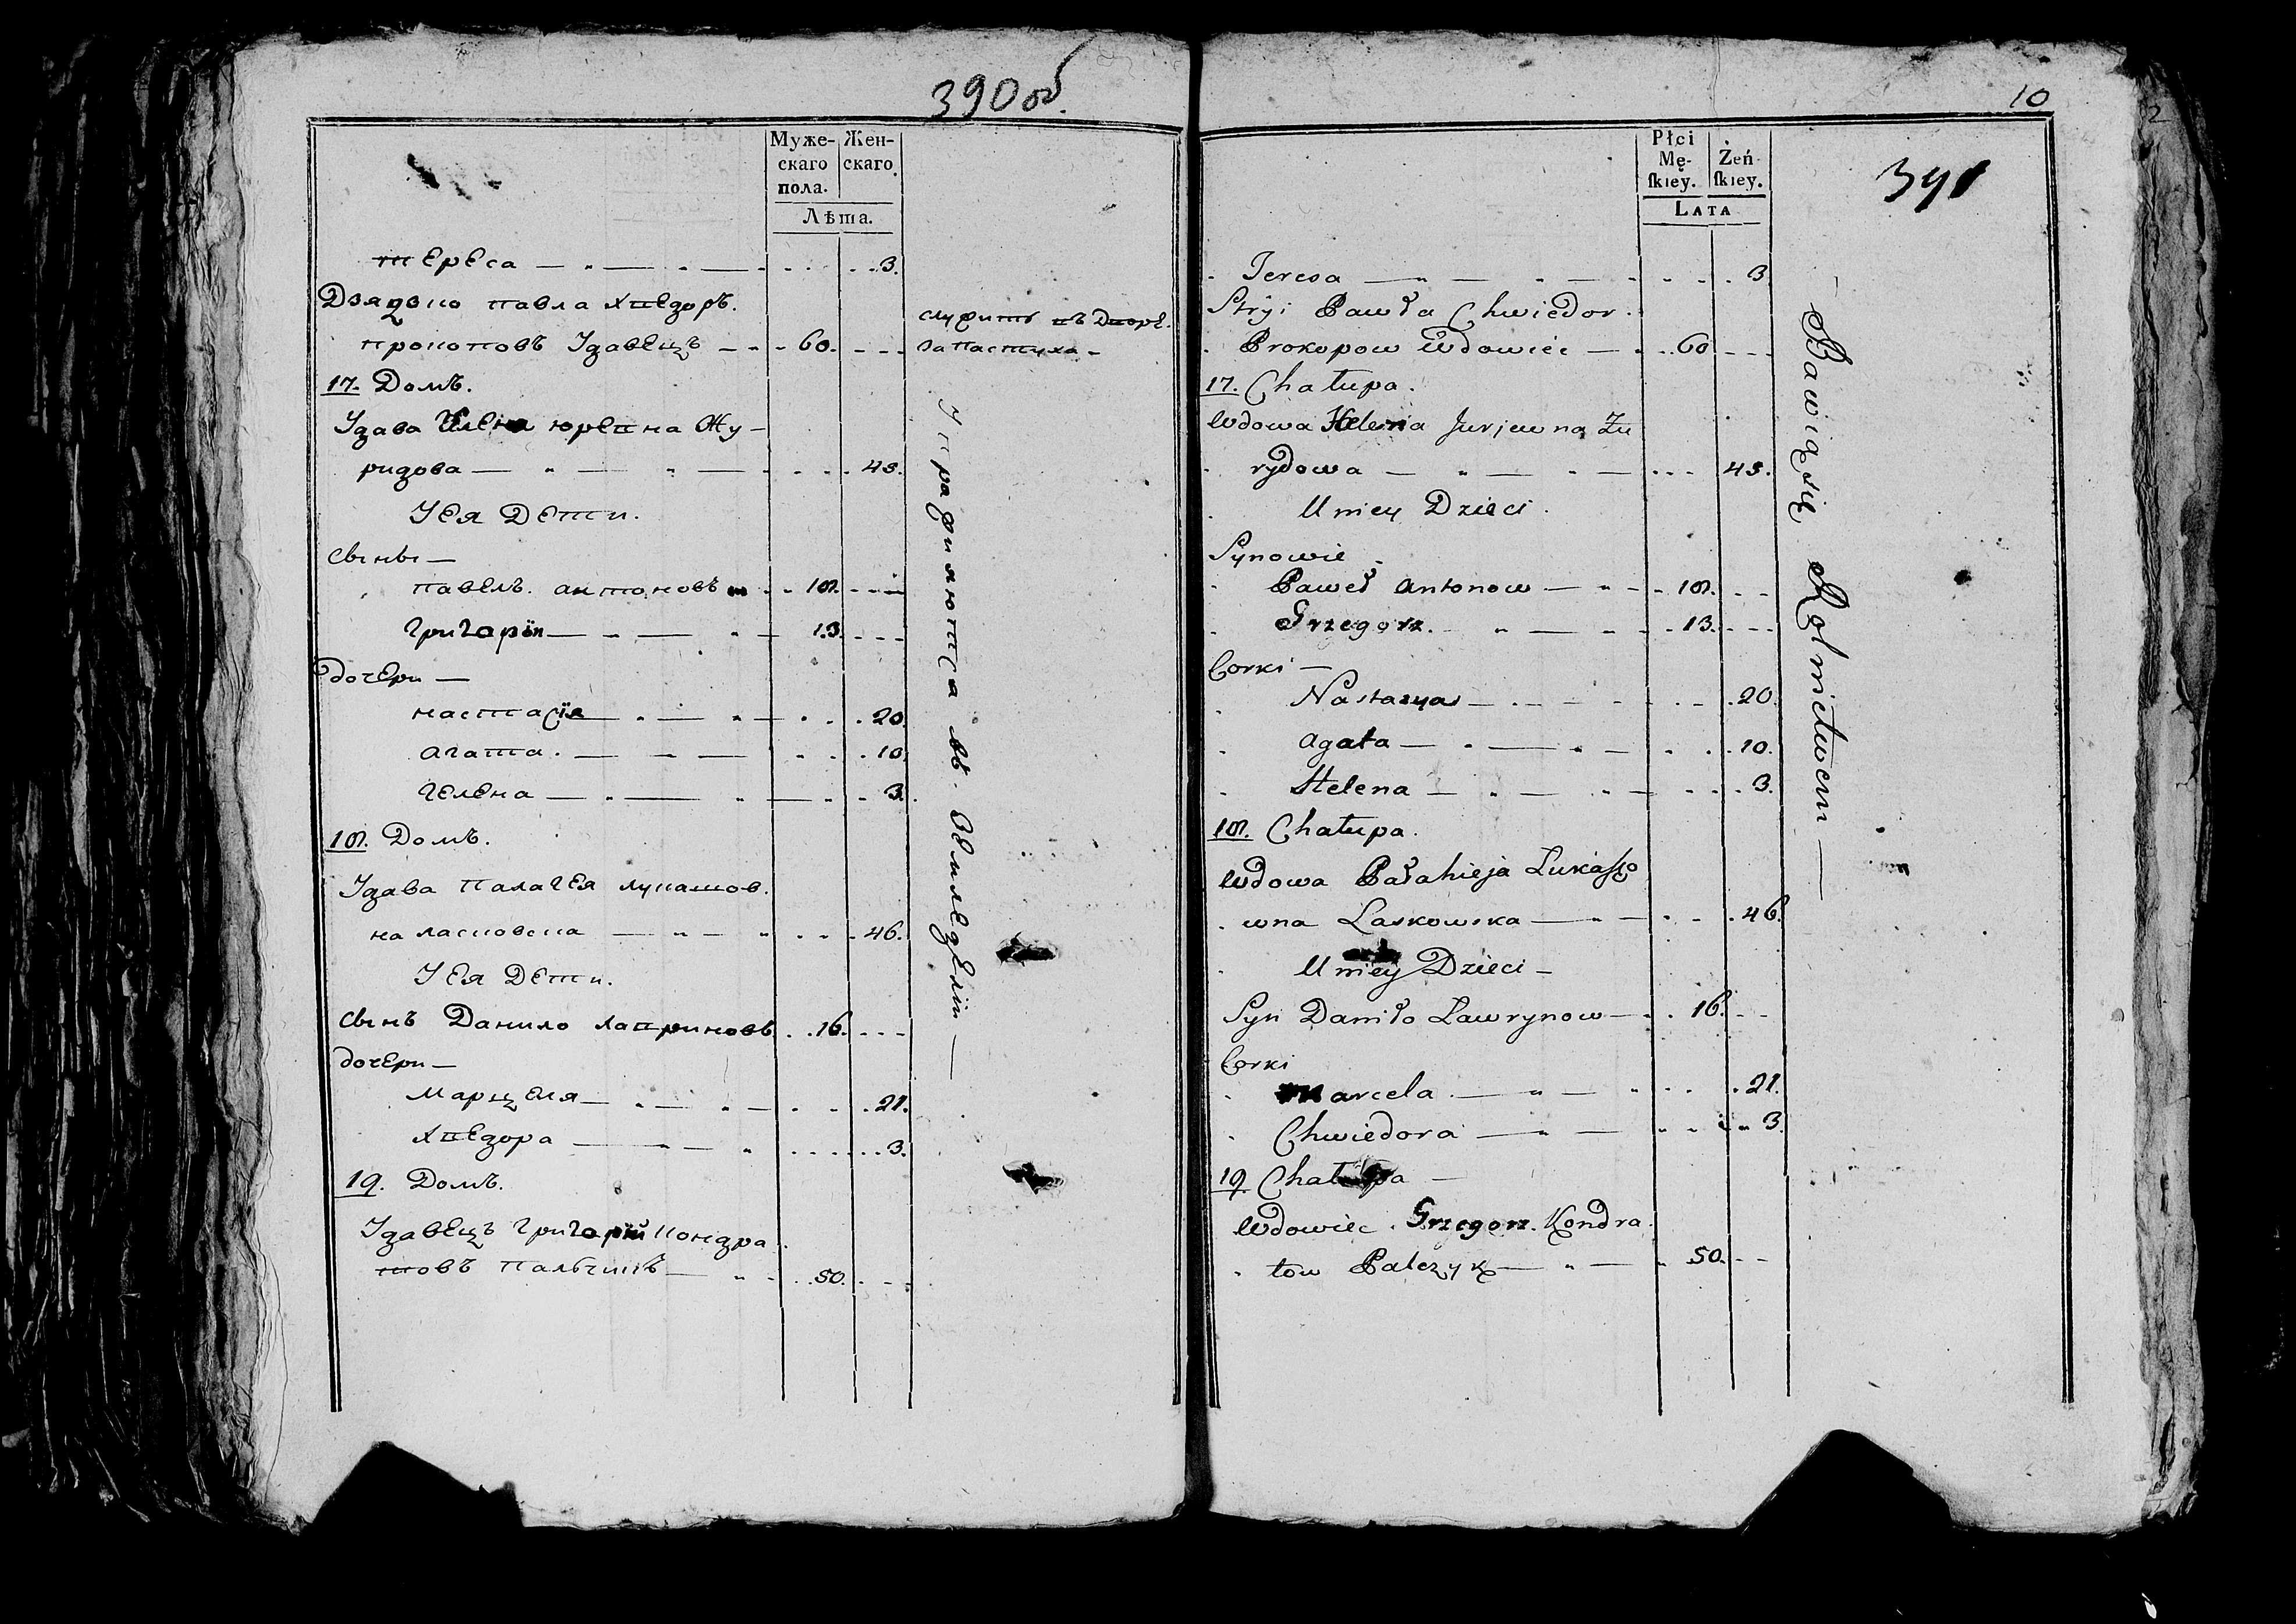 390 об.
Муже-
скаго
пола.
Жен-
скаго.
Лѣта.
тереса — 3.
Дзядзко павла Хведоръ.
прокоповъ Удавецъ — 60.
служитъ въ дворѣ
за пастуха —
17. Домъ.
Удава Гелена юревна Жу-
ридова — 45.
У ея Дети.
Сыны —
павелъ. антоновъ 18.
григорiй — 13.
дочери —
настасiя — 20
агата. — 10
гелена — 3.
18. Домъ.
Удава Палагея лукашов.
на ласковска — 46.
У ея Дети.
Сынъ Данило лавриновъ 16.
дочери —
Марцеля — 21.
Хведора — 3.
19. Домъ.
Удавецъ григорiй кондра
товъ пальчикъ — 50.
Упражняются въ земледѣлiи —
10
391
Płci
Mę-
ſkiey.
Żeń-
ſkiey.
LATA
Teresa — 3
Stryi Pawła Chwiedor.
Prokopow Wdowiec — 60
17. Chałupa.
Wdowa Helena Jurjewna Żu
rydowa — 45.
U niey Dzieci.
Synowie —
Paweł Antonow — 18.
Grzegorz. — 13.
Corki —
Nastazya — 20
Agata — 10.
Helena — 3.
18. Chałupa.
Wdowa Pałahieja Łukaszo
wna Laskowska — 46.
U niey Dzieci —
Syn Daniło Ławrynow — 16.
Corki
Marcela. — 21.
Chwiedora — 3.
19. Chałupa —
Wdowiec. Grzegorz. Kondra.
tow Palczyk — 50.
— Bawią się Rolnictwem —
2